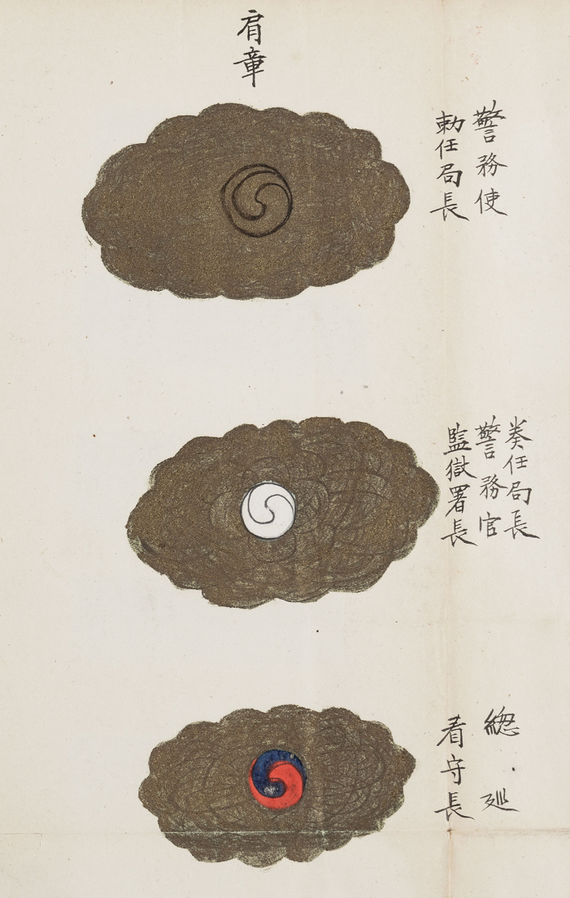 肩章
警務使
勅任局長
奏任局長
警務官
監獄署長
緫廵
看守長